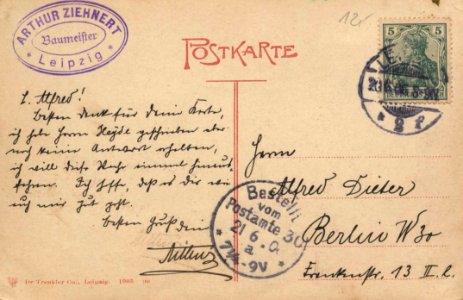 ARTHUR ZIEHNERT
Baumeister
* Leipzig *
POSTKARTE
5 5
L. Alfred!
besten Dank für deine Karte,
ich habe Herrn geschrieben aber
noch keine Antwort erhalten,
ich will diese Woche einmal
Ich hoffe, daß es dir wie
auch mir gut geht.
besten Gruß dein
Herrn
Alfred Dieter
Berlin W 30
Frankenstr. 13 II. l.
Bestellt
vom
Postamte 30
21 6. 0
a
* 7¼-9V *
* 2 f
Dr Trenkler Co., Leipzig. 1905